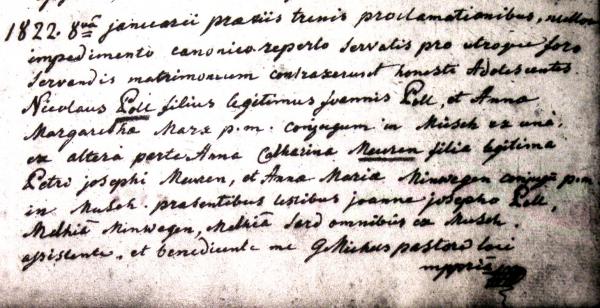 1822. 8va januarii praeviis trenis proclamationibus, nullo
impedimento canonico reperto servatis pro utroque foro
servandis matrimonium contraxerunt honesti Adolescentes
Nicolaus Poll filius legitimus joannis Poll, et Anna
Margaretha Marx p.m. conjugum in Müsch ex una,
ex altera parte Anna Catharina Meuren filia legitima
Petri josephi Meuren, et Anna Maria Minwegen conjug p.m
in Musch. praesentibus testibus joanne josepho Poll,
Mathia Minwegen, Mathia omnibus ex Musch.
assistente, et benedicente me pastore loci
mppria